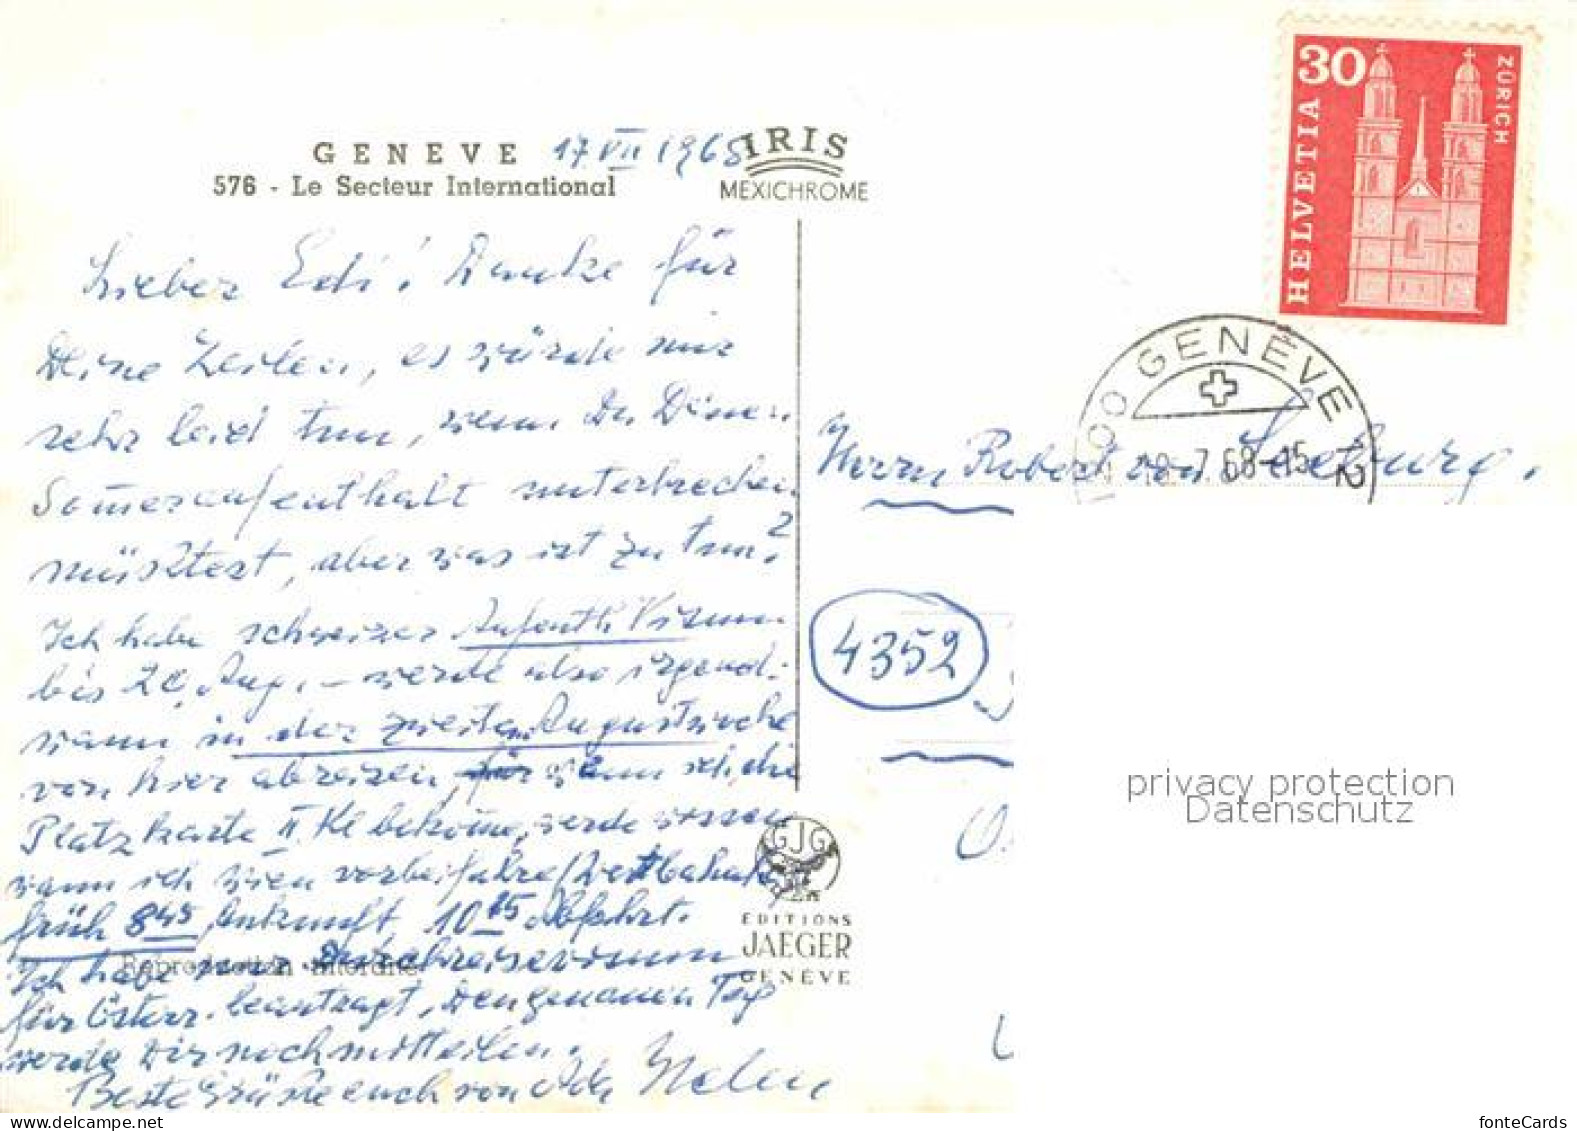 GENEVE 17 VII 1968
576 - Le Secteur International
IRIS
MEXICHROME
30
HELVETIA
ZÜRICH
GENÈVE 2
18-7.68-15
Lieber Edi! Danke für
Deine Zeilen, es würde mir
sehr leid tun, wenn Du Deinen
Sommeraufenthalt unterbrechen
müsstest, aber was ist zu tun?
Ich habe schweizer Aufenth. Visum
bis 20. Aug. – werde also irgend-
wann in der zweiten Augustwoche
von hier abreisen, wenn ich die
Platzkarte II. Kl bekome, werde wissen
wann ich Wien vorbeifahre (Westbahnhof
früh 8 45 Ankunft, 10 25 Abfahrt.
Ich habe nur Durchreisevisum
für Österr. beantragt, Den genauen Tag
werde Dir noch mitteilen.
Beste Grüße euch von
Herrn Robert von Seeburg,
4352
GJG
EDITIONS
JAEGER
GENÈVE
Reproduction interdite
privacy protection
Datenschutz
www.delcampe.net
fonteCards